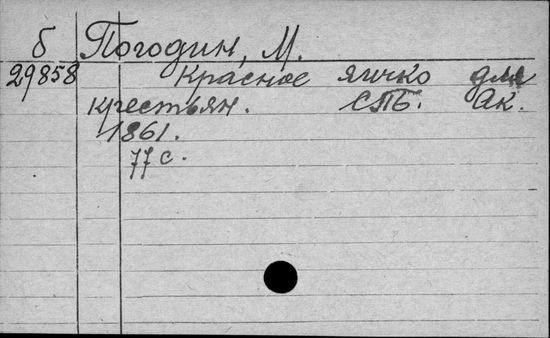 б Погодин, М.
29858 Красное яичко для
крестьян. СПБ. Ак.
1861.
77 с.